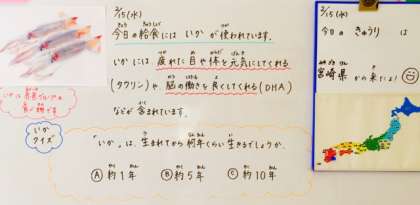 2/15(水)
今日の給食には いか が使われています。
いか には 疲れた 目 や 体 を 元気にしてくれる
(タウリン) や 脳の働きを良くしてくれる(DHA)
などが 含まれています。
いか
クイズ
「いか」は、生まれてから何年くらい生きるでしょうか。
Ⓐ 約1年 Ⓑ 約5年 Ⓒ 約10年
2/15(水)
今日の きゅうり は
宮崎県 から来たよ!